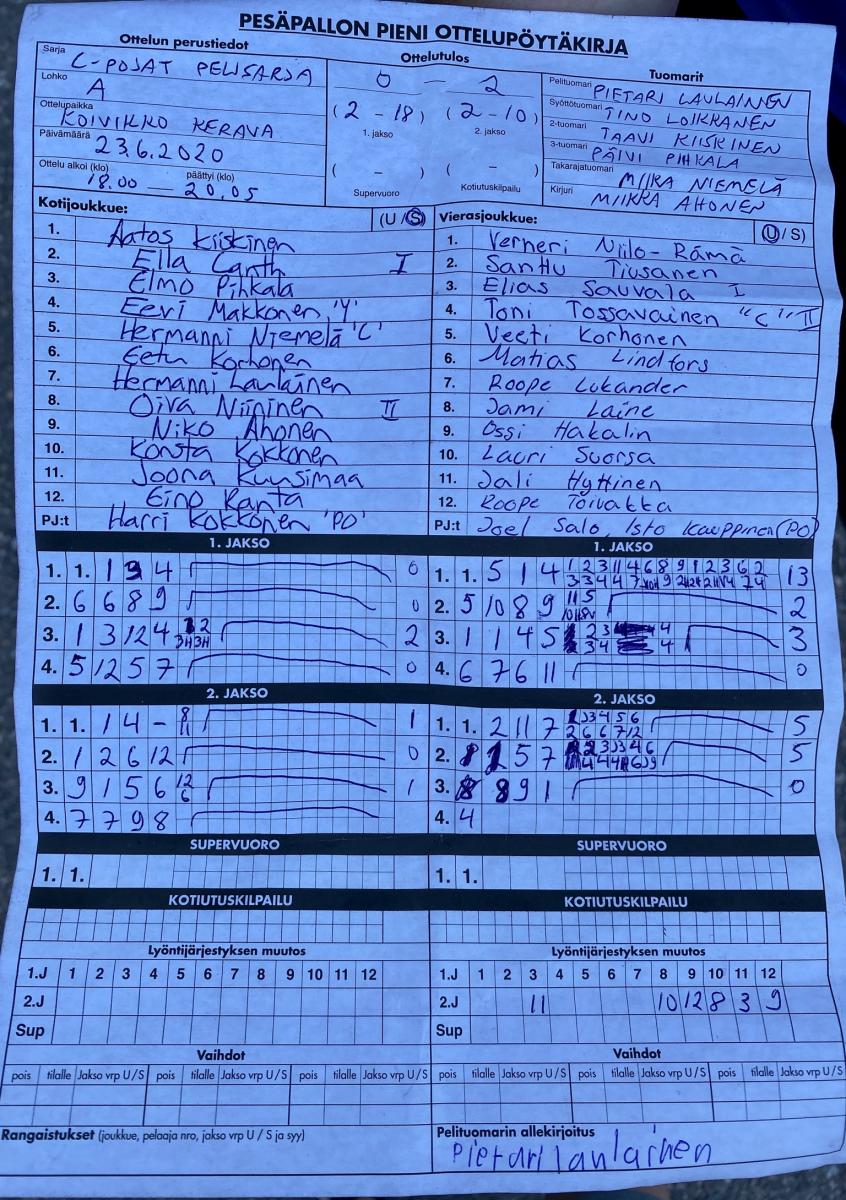 PESÄPALLON PIENI OTTELUPÖYTÄKIRJA
Ottelun perustiedot
Sarja C-POJAT PELISARJA
Lohko A
Ottelupaikka KOIVIKKO KERAVA
Päivämäärä 23.6.2020
Ottelu alkoi (klo) 18.00 — päättyi (klo) 20.05
Ottelutulos
0 — 2
(2 - 18) (2 - 10)
1. jakso 2. jakso
( - ) ( - )
Supervuoro Kotiutuskilpailu
Tuomarit
Pelituomari PIETARI LAULAINEN
Syöttötuomari TINO LOIKKANEN
2-tuomari TAAVI KIISKINEN
3-tuomari PÄIVI PIHKALA
Takarajatuomari MIIKA NIEMELÄ
Kirjuri MIIKKA AHONEN
Kotijoukkue: (U/S)
1. Aatos Kiiskinen
2. Ella Canth I
3. Elmo Pihkala
4. Eevi Makkonen 'Y'
5. Hermanni Niemelä 'C'
6. Eetu Korhonen
7. Hermanni Laulainen
8. Oiva Niininen II
9. Niko Ahonen
10. Konsta Kokkonen
11. Joona Kuusimaa
12. Eino Ranta
PJ:t Harri Kokkonen 'PO'
Vierasjoukkue: (U/S)
1. Verneri Niilo-Rämä
2. Santtu Tiusanen
3. Elias Sauvala I
4. Toni Tossavainen "C" II
5. Veeti Korhonen
6. Matias Lindfors
7. Roope Lukander
8. Jami Laine
9. Ossi Hakalin
10. Lauri Suorsa
11. Jali Hyttinen
12. Roope Toivakka
PJ:t Joel Salo, Isto Kauppinen (PO)
1. JAKSO
1. 1. 1 3 4 0
2. 6 6 8 9 0
3. 1 3 12 4 2
4. 5 12 5 7 0
2. JAKSO
1. 1. 1 4 - 8 11 1
2. 1 2 6 12 0
3. 9 1 5 6 12 6 1
4. 7 7 9 8
SUPERVUORO
1. 1.
KOTIUTUSKILPAILU
Lyöntijärjestyksen muutos
1.J 1 2 3 4 5 6 7 8 9 10 11 12
2.J
Sup
Vaihdot
pois tilalle Jakso vrp U/S pois tilalle Jakso vrp U/S pois tilalle Jakso vrp U/S
Rangaistukset (joukkue, pelaaja nro, jakso vrp U / S ja syy)
1. JAKSO
1. 1. 5 1 4 13
2. 5 10 8 9 2
3. 1 1 4 5 3
4. 6 7 6 11 0
2. JAKSO
1. 1. 2 11 7 5
2. 1 5 7 5
3. 8 9 1 0
4. 4
SUPERVUORO
1. 1.
KOTIUTUSKILPAILU
Lyöntijärjestyksen muutos
1.J 1 2 3 4 5 6 7 8 9 10 11 12
2.J 11 10 12 8 3 9
Sup
Vaihdot
pois tilalle Jakso vrp U/S pois tilalle Jakso vrp U/S pois tilalle Jakso vrp U/S
Pelituomarin allekirjoitus
Pietari Laulainen